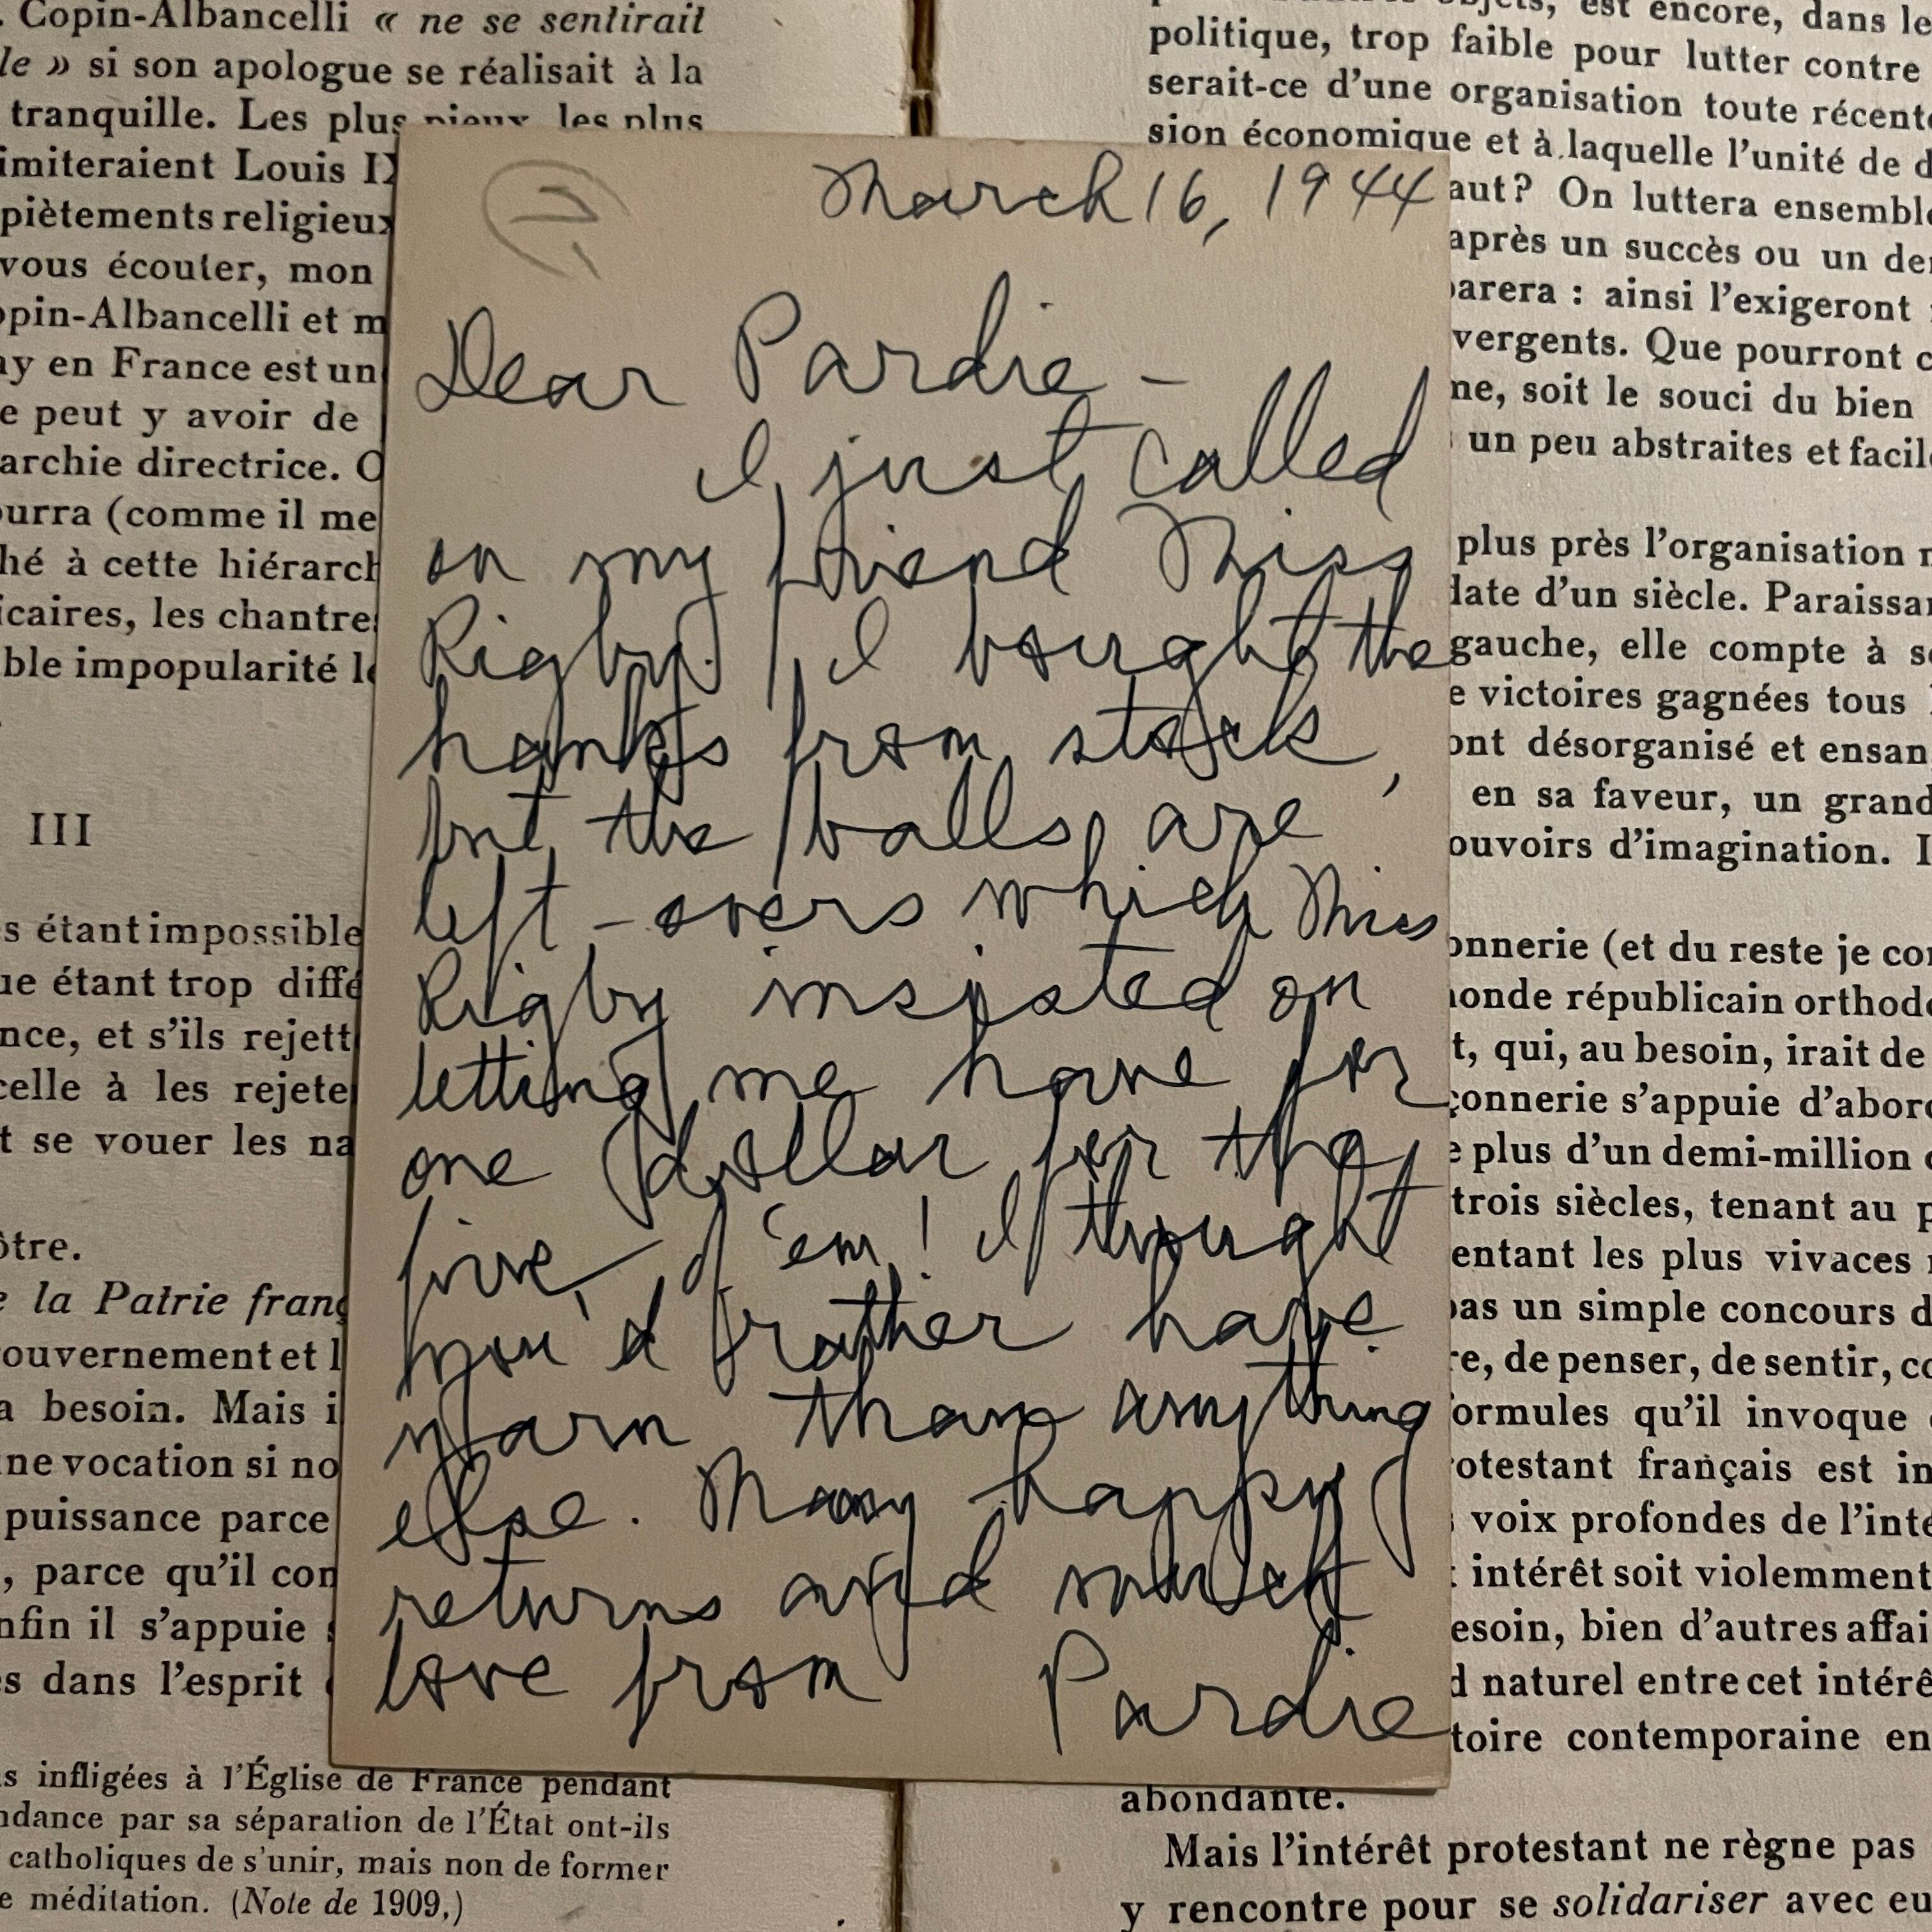 . Copin-Albancelli « ne se sentirait
le » si son apologue se réalisait à la
tranquille. Les plus pieux, les plus
imiteraient Louis IX
piètements religieux
vous écouter, mon
opin-Albancelli et m
ay en France est un
e peut y avoir de
archie directrice. C
ourra (comme il me
hé à cette hiérarch
icaires, les chantre
ble impopularité le
III
s étant impossible
ue étant trop diffé
nce, et s'ils rejett
celle à les rejete
t se vouer les na
ôtre.
e la Patrie franç
gouvernement et l
a besoin. Mais i
une vocation si no
puissance parce
, parce qu'il con
nfin il s'appuie s
s dans l'esprit
s infligées à l'Église de France pendant
ndance par sa séparation de l'État ont-ils
catholiques de s'unir, mais non de former
e méditation. (Note de 1909.)
March 16, 1944
Dear Pardie –
I just called
on my friend Miss
Rigby. I bought the
hanks from stock,
but the balls are
left-overs which Miss
Rigby insisted on
letting me have for
one dollar for the
five of 'em! I thought
you'd rather have
yarn than anything
else. Many happy
returns and much
love from Pardie
objets, est encore, dans le
politique, trop faible pour lutter contre
serait-ce d'une organisation toute récente
sion économique et à laquelle l'unité de d
aut? On luttera ensemble
après un succès ou un de
parera : ainsi l'exigeront
vergents. Que pourront c
me, soit le souci du bien
un peu abstraites et facile
plus près l'organisation
date d'un siècle. Paraissan
gauche, elle compte à s
e victoires gagnées tous
ont désorganisé et ensan
en sa faveur, un grand
ouvoirs d'imagination. I
onnerie (et du reste je co
monde républicain orthod
t, qui, au besoin, irait de
çonnerie s'appuie d'abor
e plus d'un demi-million
trois siècles, tenant au p
entant les plus vivaces
pas un simple concours d
re, de penser, de sentir, co
ormules qu'il invoque
rotestant français est in
voix profondes de l'inté
intérêt soit violemment
esoin, bien d'autres affai
d naturel entre cet intérê
toire contemporaine en
abondante.
Mais l'intérêt protestant ne règne pas
y rencontre pour se solidariser avec eu